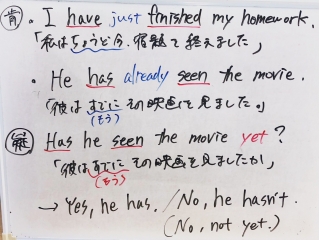 肯 • I have just finished my homework.
「私はちょうど今、宿題を終えました」
• He has already seen the movie.
「彼はすでにその映画を見ました。」
(もう)
疑 Has he seen the movie yet?
「彼はすでにその映画を見ましたか」
(もう)
→ Yes, he has. / No, he hasn't.
(No, not yet.)